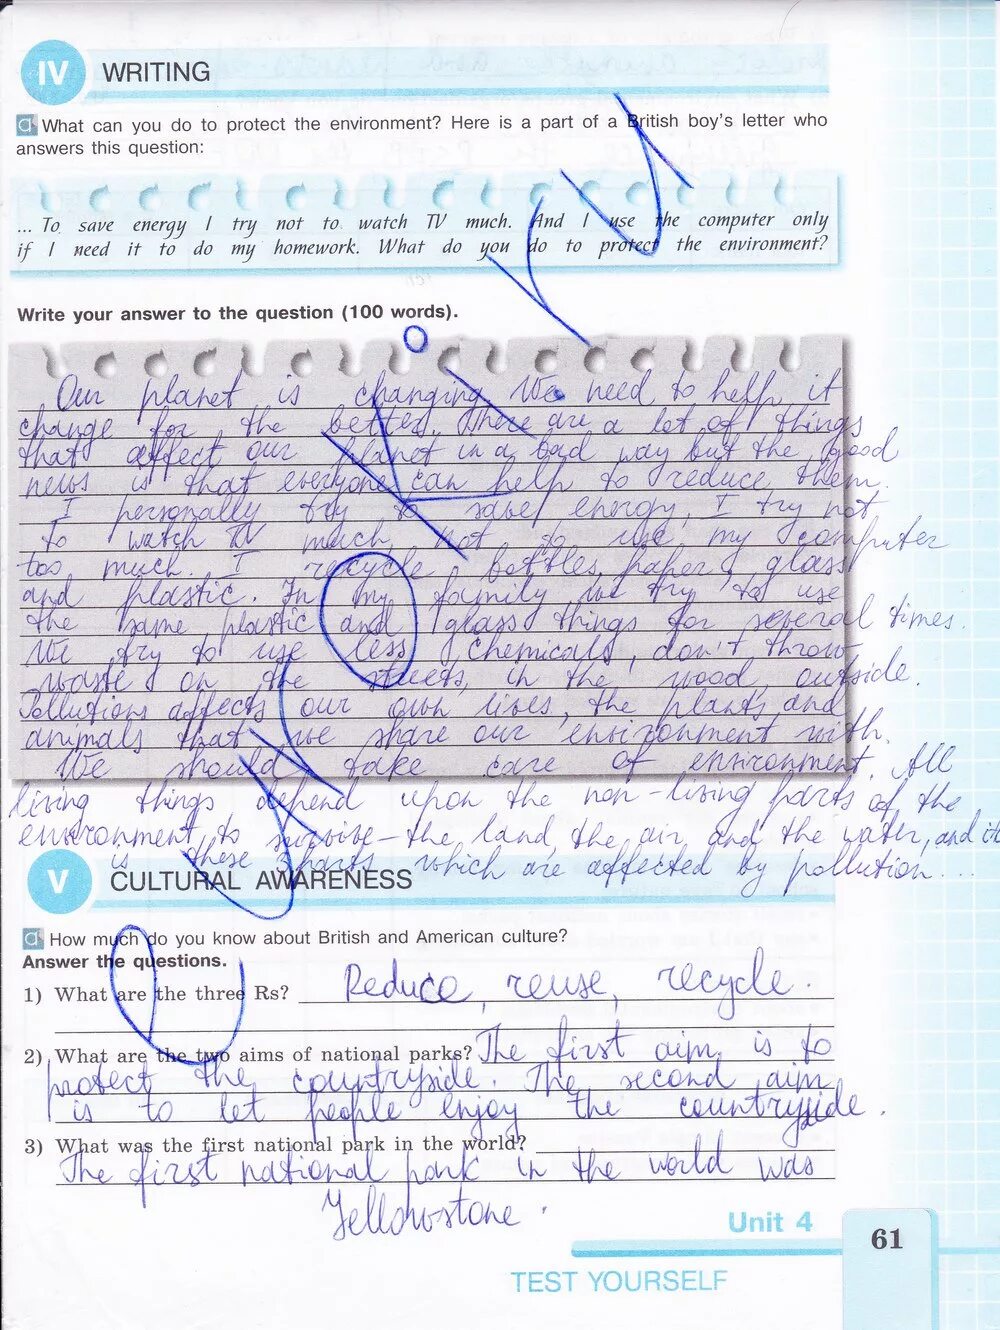 IV WRITING
a What can you do to protect the environment? Here is a part of a British boy's letter who
answers this question:
... To save energy I try not to watch TV much. And I use the computer only
if I need it to do my homework. What do you do to protect the environment?
Write your answer to the question (100 words).
Our planet is changing. We need to help it
change for the better. There are a lot of things
that affect our planet in a bad way but the good
news is that everyone can help to reduce them.
I personally try to save energy, I try not
to watch TV much, not to use my computer
too much. I recycle bottles, paper, glass
and plastic. In my family we try to use
the same plastic and glass things for several times.
We try to use less chemicals, don't throw
waste on the streets, in the wood, outside.
Pollutions affects our own lives, the plants and
animals that we share our environment with.
We should take care of environment. All
living things depend upon the non-living parts of the
environment to survive – the land, the air, and the water, and it
is these 3 parts which are affected by pollution...
V CULTURAL AWARENESS
a How much do you know about British and American culture?
Answer the questions.
1) What are the three Rs? Reduce, reuse, recycle.
2) What are the two aims of national parks? The first aim is to
protect the countryside. The second aim
is to let people enjoy the countryside.
3) What was the first national park in the world?
The first national park in the world was
Yellowstone.
Unit 4
61
TEST YOURSELF